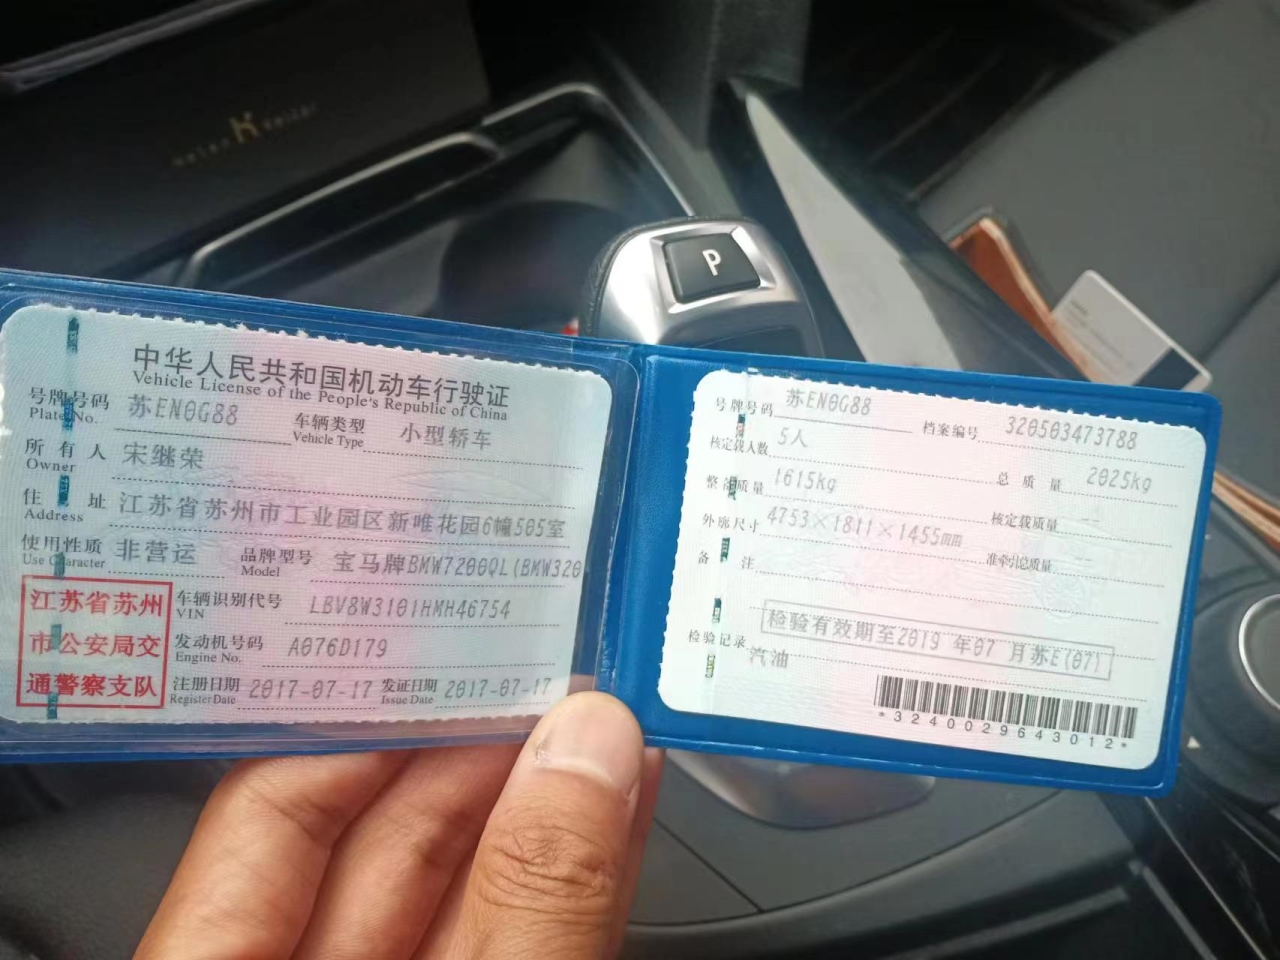 Helen K Keller
P
中华人民共和国机动车行驶证
Vehicle License of the People's Republic of China
号牌号码 苏EN0G88 车辆类型 小型轿车
Plate No. Vehicle Type
所有人 宋继荣
Owner
住址 江苏省苏州市工业园区新唯花园6幢505室
Address
使用性质 非营运 品牌型号 宝马牌BMW7200QL(BMW320
Use Character Model
江苏省苏州
市公安局交
通警察支队
车辆识别代号 LBV8W3101HMH46754
VIN
发动机号码 A076D179
Engine No.
注册日期 2017-07-17 发证日期 2017-07-17
Register Date Issue Date
号牌号码 苏EN0G88 档案编号 320503473788
核定载人数 5人 总质量 2025kg
整备质量 1615kg 核定载质量 --
外廓尺寸 4753×1811×1455mm 准牵引总质量 --
备注
检验有效期至2019 年07 月苏E(07)
检验记录
汽油
*3240029643012*